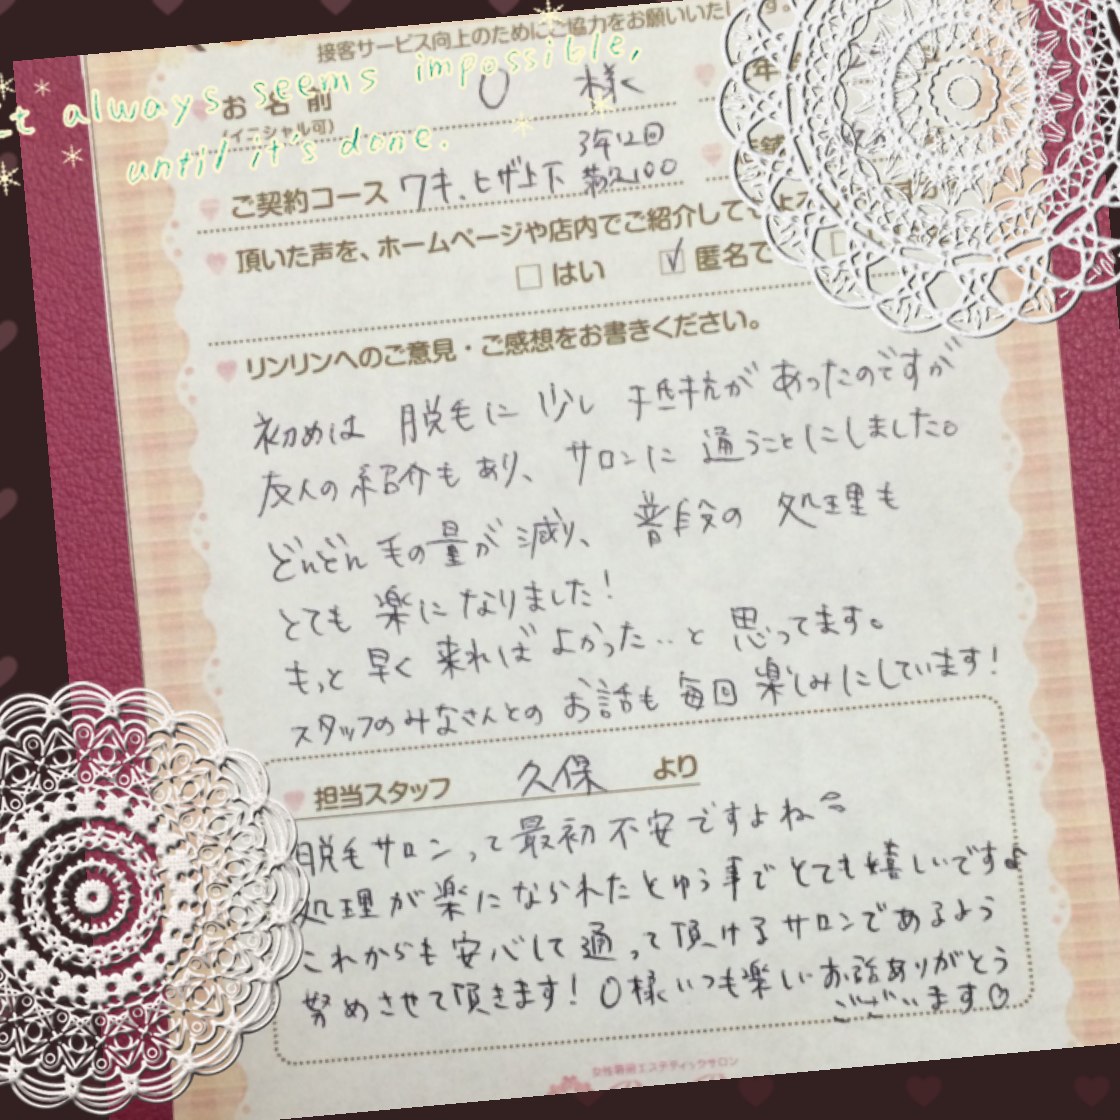 接客サービス向上のためにご協力をお願いいたします。
always seems impossible,
until it's done.
お名前 O 様
(イニシャル可)
ご契約コース ワキ、ヒザ上下 3年12回
頂いた声を、ホームページや店内でご紹介して
はい ✓ 匿名で
リンリンへのご意見・ご感想をお書きください。
初めは 脱毛に 少し 抵抗が あったのですが
友人の紹介もあり、サロンに 通うことにしました。
どんどん毛の量が減り、普段の 処理も
とても 楽に なりました!
もっと 早く 来れば よかった..と 思ってます。
スタッフのみなさんとの お話も 毎回 楽しみにしています!
担当スタッフ 久保 より
脱毛サロンって最初不安ですよね
処理が楽になられたとゆう事でとても嬉しいです♪
これからも安心して通って頂けるサロンであるよう
努めさせて頂きます! O様いつも楽しいお話ありがとう
ございます♡
女性専用エステティックサロン